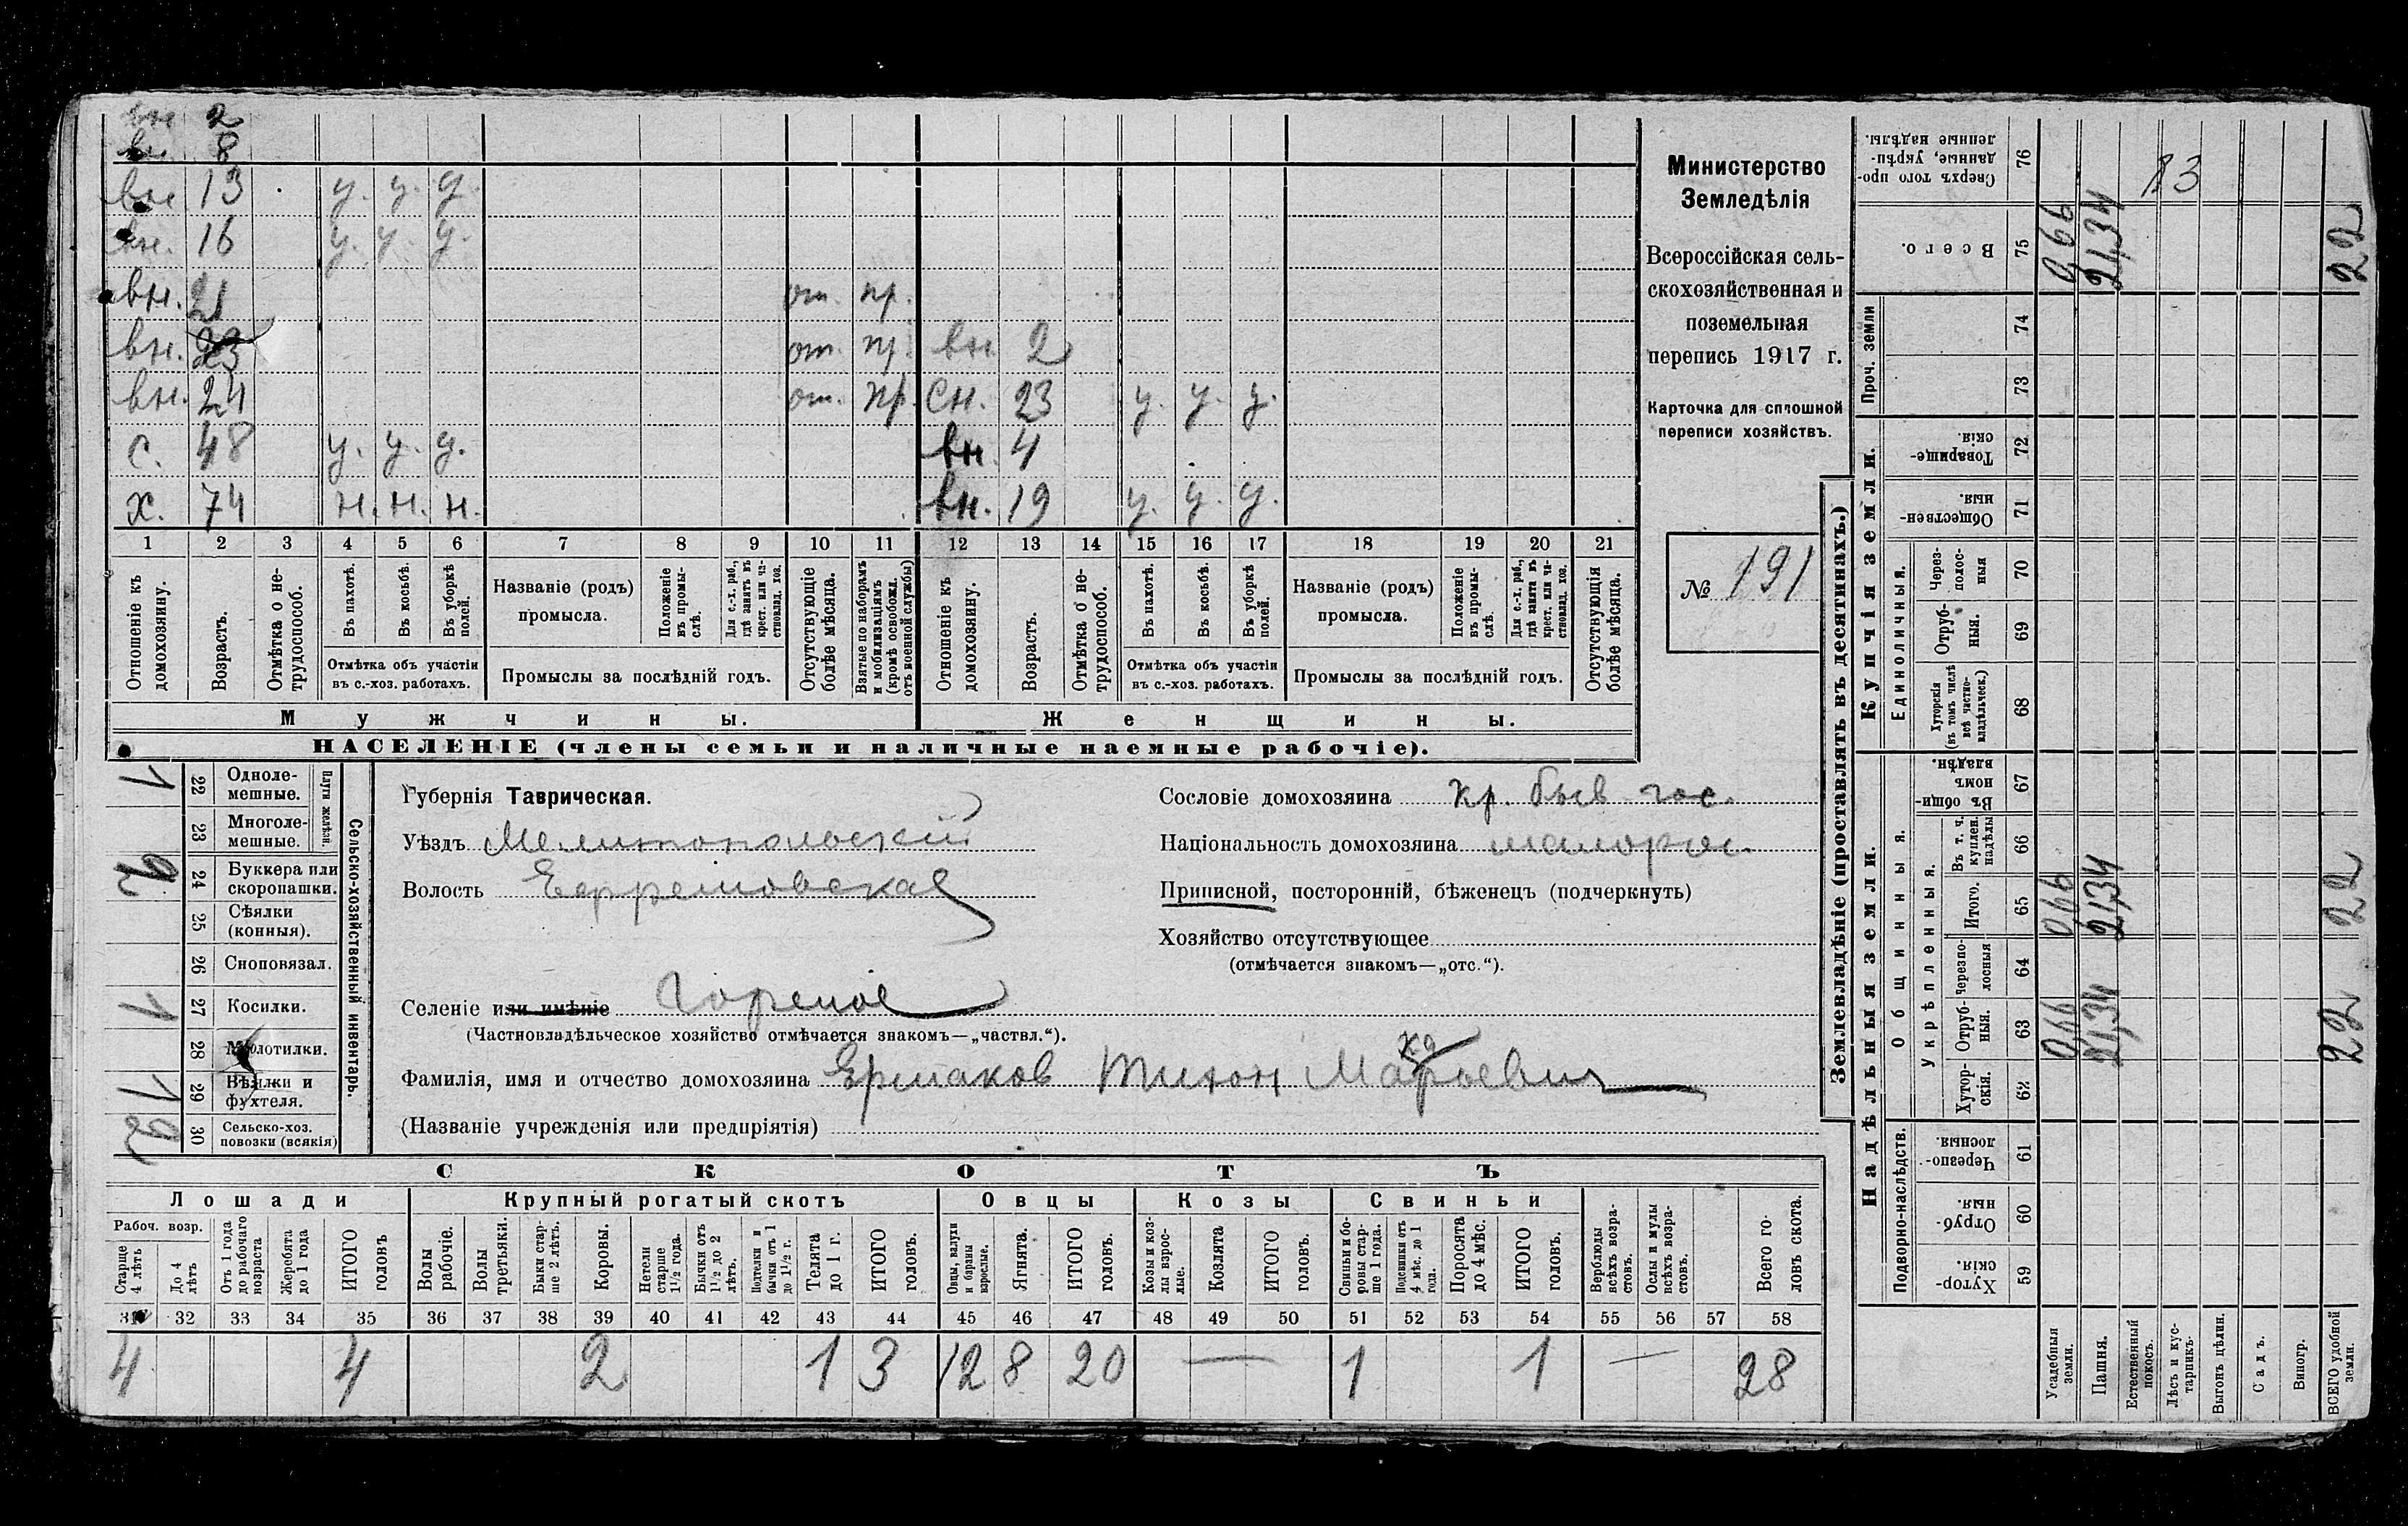 вн. 2
вн. 8
вн. 13 у. у. у.
вн. 16 у. у. у.
вн. 21 от. пр.
вн. 23 от. пр. вн. 2
вн. 24 от. пр. сн. 23 у. у. у.
с. 48 у. у. у. вн. 4
х. 74 н. н. н. вн. 19 у. у. у.
1 2 3 4 5 6 7 8 9 10 11 12 13 14 15 16 17 18 19 20 21
Отношеніе къ домохозяину.
Возрастъ.
Отмѣтка о не-трудоспособ.
Въ пахотѣ.
Въ косьбѣ.
Въ уборкѣ полей.
Отмѣтка объ участіи въ с.-хоз. работахъ.
Названіе (родъ) промысла.
Положеніе въ промы-слѣ.
Для с.-х. раб., гдѣ занятъ въ крест. или ча-стновлад. хоз.
Промыслы за послѣдній годъ.
Отсутствующіе болѣе мѣсяца.
Взятые по наборамъ и мобилизаціямъ (кромѣ освобожд. отъ военной службы)
Отношеніе къ домохозяину.
Возрастъ.
Отмѣтка о не-трудоспособ.
Въ пахотѣ.
Въ косьбѣ.
Въ уборкѣ полей.
Отмѣтка объ участіи въ с.-хоз. работахъ.
Названіе (родъ) промысла.
Положеніе въ промы-слѣ.
Для с.-х. раб., гдѣ занята въ крест. или ча-стновлад. хоз.
Промыслы за послѣдній годъ.
Отсутствующія болѣе мѣсяца.
Мужчины. Женщины.
НАСЕЛЕНІЕ (члены семьи и наличные наемные рабочіе).
Министерство
Земледѣлія
Всероссійская сель-
скохозяйственная и
поземельная
перепись 1917 г.
Карточка для сплошной
переписи хозяйствъ.
№ 191
Сельско-хозяйственный инвентарь.
Плуги желѣзн.
1 22 Одноле-мешные.
23 Многоле-мешные.
24 Буккера или скоропашки.
25 Сѣялки (конныя).
26 Сноповязал.
1 27 Косилки.
28 Молотилки.
1 29 Вѣялки и фухтеля.
2 30 Сельско-хоз. повозки (всякія)
Губернія Таврическая.
Уѣздъ Мелитопольскій
Волость Ефремовская
Селеніе или имѣніе Горелое
(Частновладѣльческое хозяйство отмѣчается знакомъ—„частвл.“).
Фамилія, имя и отчество домохозяина Ермаков Тихон
(Названіе учрежденія или предпріятія)
Сословіе домохозяина кр. быв. гос.
Національность домохозяина малорос.
Приписной, посторонній, бѣженецъ (подчеркнуть)
Хозяйство отсутствующее
(отмѣчается знакомъ—„отс.“).
СКОТЪ
Лошади Крупный рогатый скотъ Овцы Козы Свиньи
Рабоч. возр.
Старше 4 лѣтъ
До 4 лѣтъ
Отъ 1 года до рабочаго возраста
Жеребята до 1 года
ИТОГО головъ
Волы рабочіе.
Волы третьяки.
Быки стар-ше 2 лѣтъ.
Коровы.
Нетели старше 1½ года.
Бычки отъ 1½ до 2 лѣтъ.
Подтелки и бычки отъ 1 до 1½ г.
Телята до 1 г.
ИТОГО головъ.
Овцы, валухи и бараны взрослые.
Ягнята.
ИТОГО головъ.
Козы и коз-лы взрос-лые.
Козлята
ИТОГО головъ.
Свиньи и бо-ровы стар-ше 1 года.
Подсвинки отъ 4 мѣс. до 1 года.
Поросята до 4 мѣс.
ИТОГО головъ.
Верблюды всѣхъ возра-стовъ.
Ослы и мулы всѣхъ возра-стовъ.
Всего го-ловъ скота.
31 32 33 34 35 36 37 38 39 40 41 42 43 44 45 46 47 48 49 50 51 52 53 54 55 56 57 58
4 4 2 1 3 12 8 20 — 1 1 — 28
Землевладѣніе (проставлять въ десятинахъ.)
Купчія земли.
Надѣльныя земли.
Проч. земли
Единоличныя.
Общинныя.
Укрѣпленныя.
Подворно-наслѣдств.
Сверхъ того про-данные, укрѣп-ленные надѣлы. 76 13
Всего. 75 0,66 21,34 22
74
73
Товарище-скія. 72
Обществен-ныя. 71
Через-полос-ныя 70
Отруб-ныя. 69
Хуторскія (въ томъ числѣ всѣ частно-владѣльческ.) 68
Въ общин-номъ владѣн. 67
Въ т. ч. куплен. надѣлы 66
Итого. 65 0,66 21,34 22
Черезпо-лосныя 64
Отруб-ныя. 63 0,66 21,34 22
Хутор-скія. 62
Черезпо-лосныя. 61
Отруб-ныя. 60
Хутор-скія. 59
Усадебныя земли.
Пашня.
Естественный покосъ.
Лѣсъ и кус-тарникъ.
Выгонъ цѣлин.
Садъ.
Виногр.
ВСЕГО удобной земли.